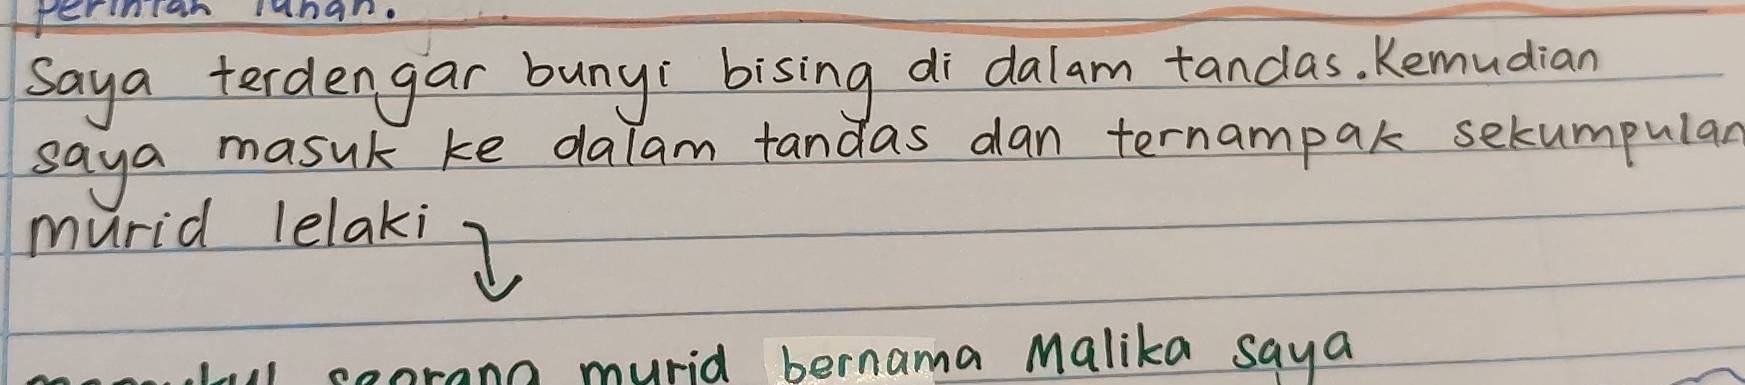 perintah Tuhan.
Saya terdengar bunyi bising di dalam tandas. Kemudian
saya masuk ke dalam tandas dan ternampak sekumpulan
murid lelaki
seorang murid bernama Malika saya